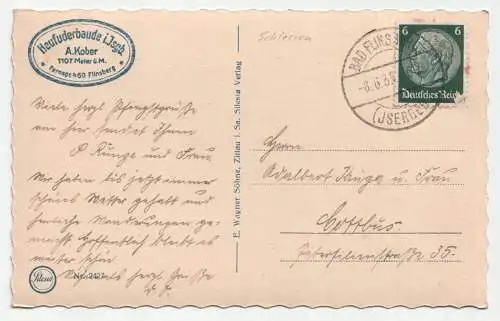 Heufuderbaude i. Jsgb.
A. Kober
1107 Meter ü. M.
Fernspr. 60 Flinsberg
Schlesien
BAD FLINS
-8.6.3
(JSERGEB
6 6
Deutsches Reich
Viele herzl Pfingstgrüße
von hier sendet Ihnen
P Runge und Frau
Wir haben bis jetzt immer
schönes Wetter gehabt und
herrliche Wanderungen ge-
macht. Hoffentlich bleibt es
weiter schön
herzl Grüße
E. Wagner Söhne, Zittau i. Sa. Silesia Verlag
Herrn
Adalbert Runge u. Frau
Cottbus
35.
Silesia
Nr.